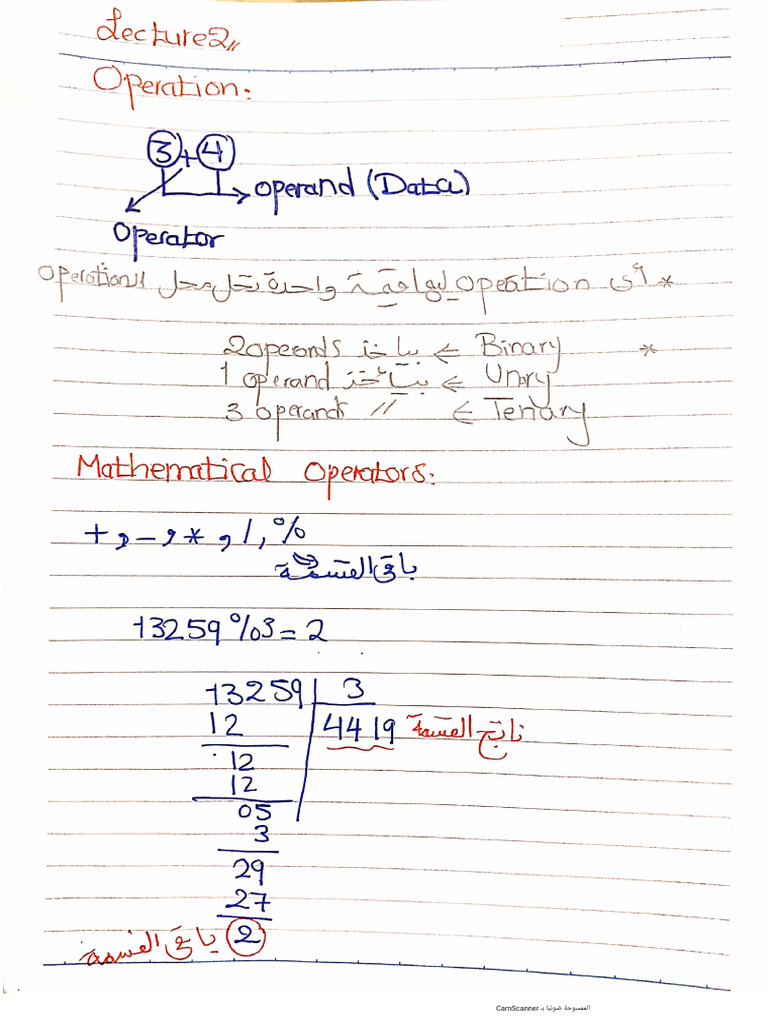 Lecture2,,
Operation:
3 + 4
operand (Data)
Operator
* أي opeation ليها قيمة واحدة تحل محل الـ Operation
* Binary ⇐ بياخد 2opeands
Unary ⇐ بياخد 1 operand
Tenary ⇐ // 3 operands
Mathematical Operators:
+ , - , * , / , %
باقي القسمة
13259 % 3 = 2
13259 | 3
12 | 4419 ناتج القسمة
12
12
05
3
29
27
2 باقي القسمة
الممسوحة ضوئيا بـ CamScanner